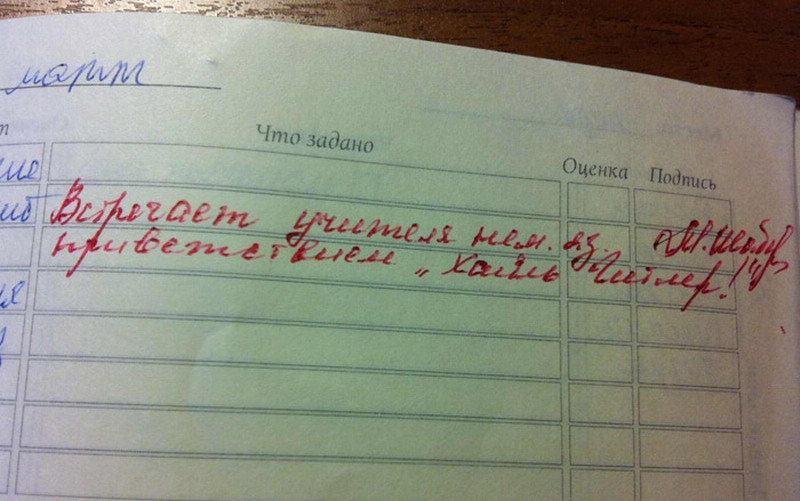 март
Что задано
Оценка Подпись
Встречает учителя нем. яз.
приветствием „Хайль Гитлер!"